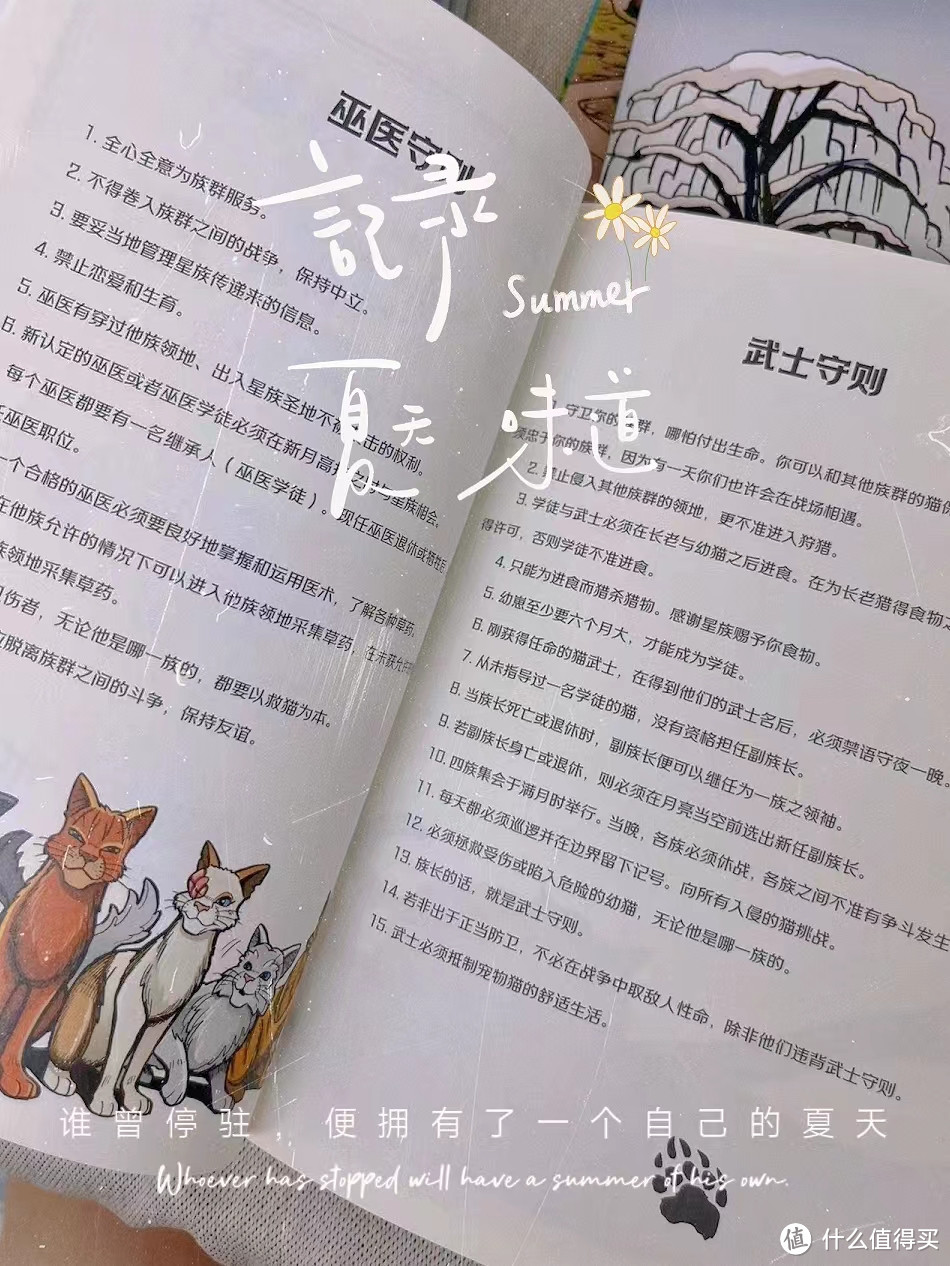 巫医守则
1. 全心全意为族群服务。
2. 不得卷入族群之间的战争，保持中立。
3. 要妥当地管理星族传递来的信息。
4. 禁止恋爱和生育。
5. 巫医有穿过他族领地、出入星族圣地不被 击的权利。
6. 新认定的巫医或者巫医学徒必须在新月高 之时与星族相会。
每个巫医都要有一名继承人（巫医学徒）。现任巫医退休或牺牲后
任巫医职位。
一个合格的巫医必须要良好地掌握和运用医术，了解各种草药。
在他族允许的情况下可以进入他族领地采集草药，在未获允许
族领地采集草药。
伤者，无论他是哪一族的，都要以救猫为本。
脱离族群之间的斗争，保持友谊。
記录
Summer
夏天 味道
武士守则
守卫你的 群，哪怕付出生命。你可以和其他族群的猫
须忠于你的族群，因为有一天你们也许会在战场相遇。
2. 禁止侵入其他族群的领地，更不准进入狩猎。
3. 学徒与武士必须在长老与幼猫之后进食。在为长老猎得食物之
得许可，否则学徒不准进食。
4. 只能为进食而猎杀猎物。感谢星族赐予你食物。
5. 幼崽至少要六个月大，才能成为学徒。
6. 刚获得任命的猫武士，在得到他们的武士名后，必须禁语守夜一晚。
7. 从未指导过一名学徒的猫，没有资格担任副族长。
8. 当族长死亡或退休时，副族长便可以继任为一族之领袖。
9. 若副族长身亡或退休，则必须在月亮当空前选出新任副族长。
10. 四族集会于满月时举行。当晚，各族必须休战，各族之间不准有争斗发生
11. 每天都必须巡逻并在边界留下记号。向所有入侵的猫挑战。
12. 必须拯救受伤或陷入危险的幼猫，无论他是哪一族的。
13. 族长的话，就是武士守则。
14. 若非出于正当防卫，不必在战争中取敌人性命，除非他们违背武士守则。
15. 武士必须抵制宠物猫的舒适生活。
谁曾停驻，便拥有了一个自己的夏天
Whoever has stopped will have a summer of his own.
值 什么值得买